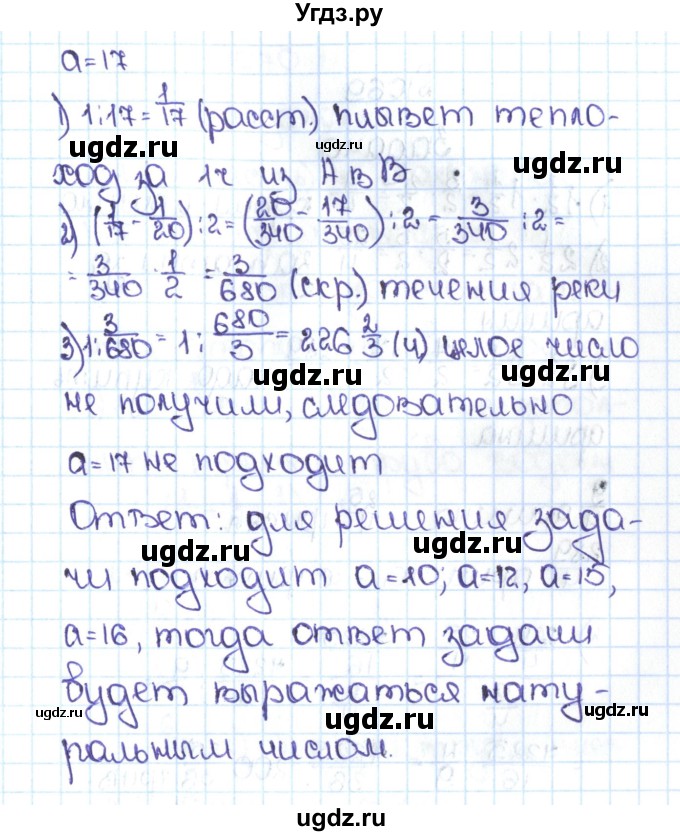 Угдз.ру
a=17
1) 1:17=1/17 (расст.) плывет тепло-
ход за 1ч из А в В.
2) (1/17 - 1/20):2=(20/340 - 17/340):2= 3/340 :2=
= 3/340 · 1/2 = 3/680 (скр.) течения реки
3) 1:3/680 = 1: 680/3 = 226 2/3 (ч) целое число
не получили, следовательно
a=17 не подходит
Ответ: для решения зада-
чи подходит a=10; a=12, a=15,
a=16, тогда ответ задачи
будет выражаться нату-
ральным числом.
ugdz.ru